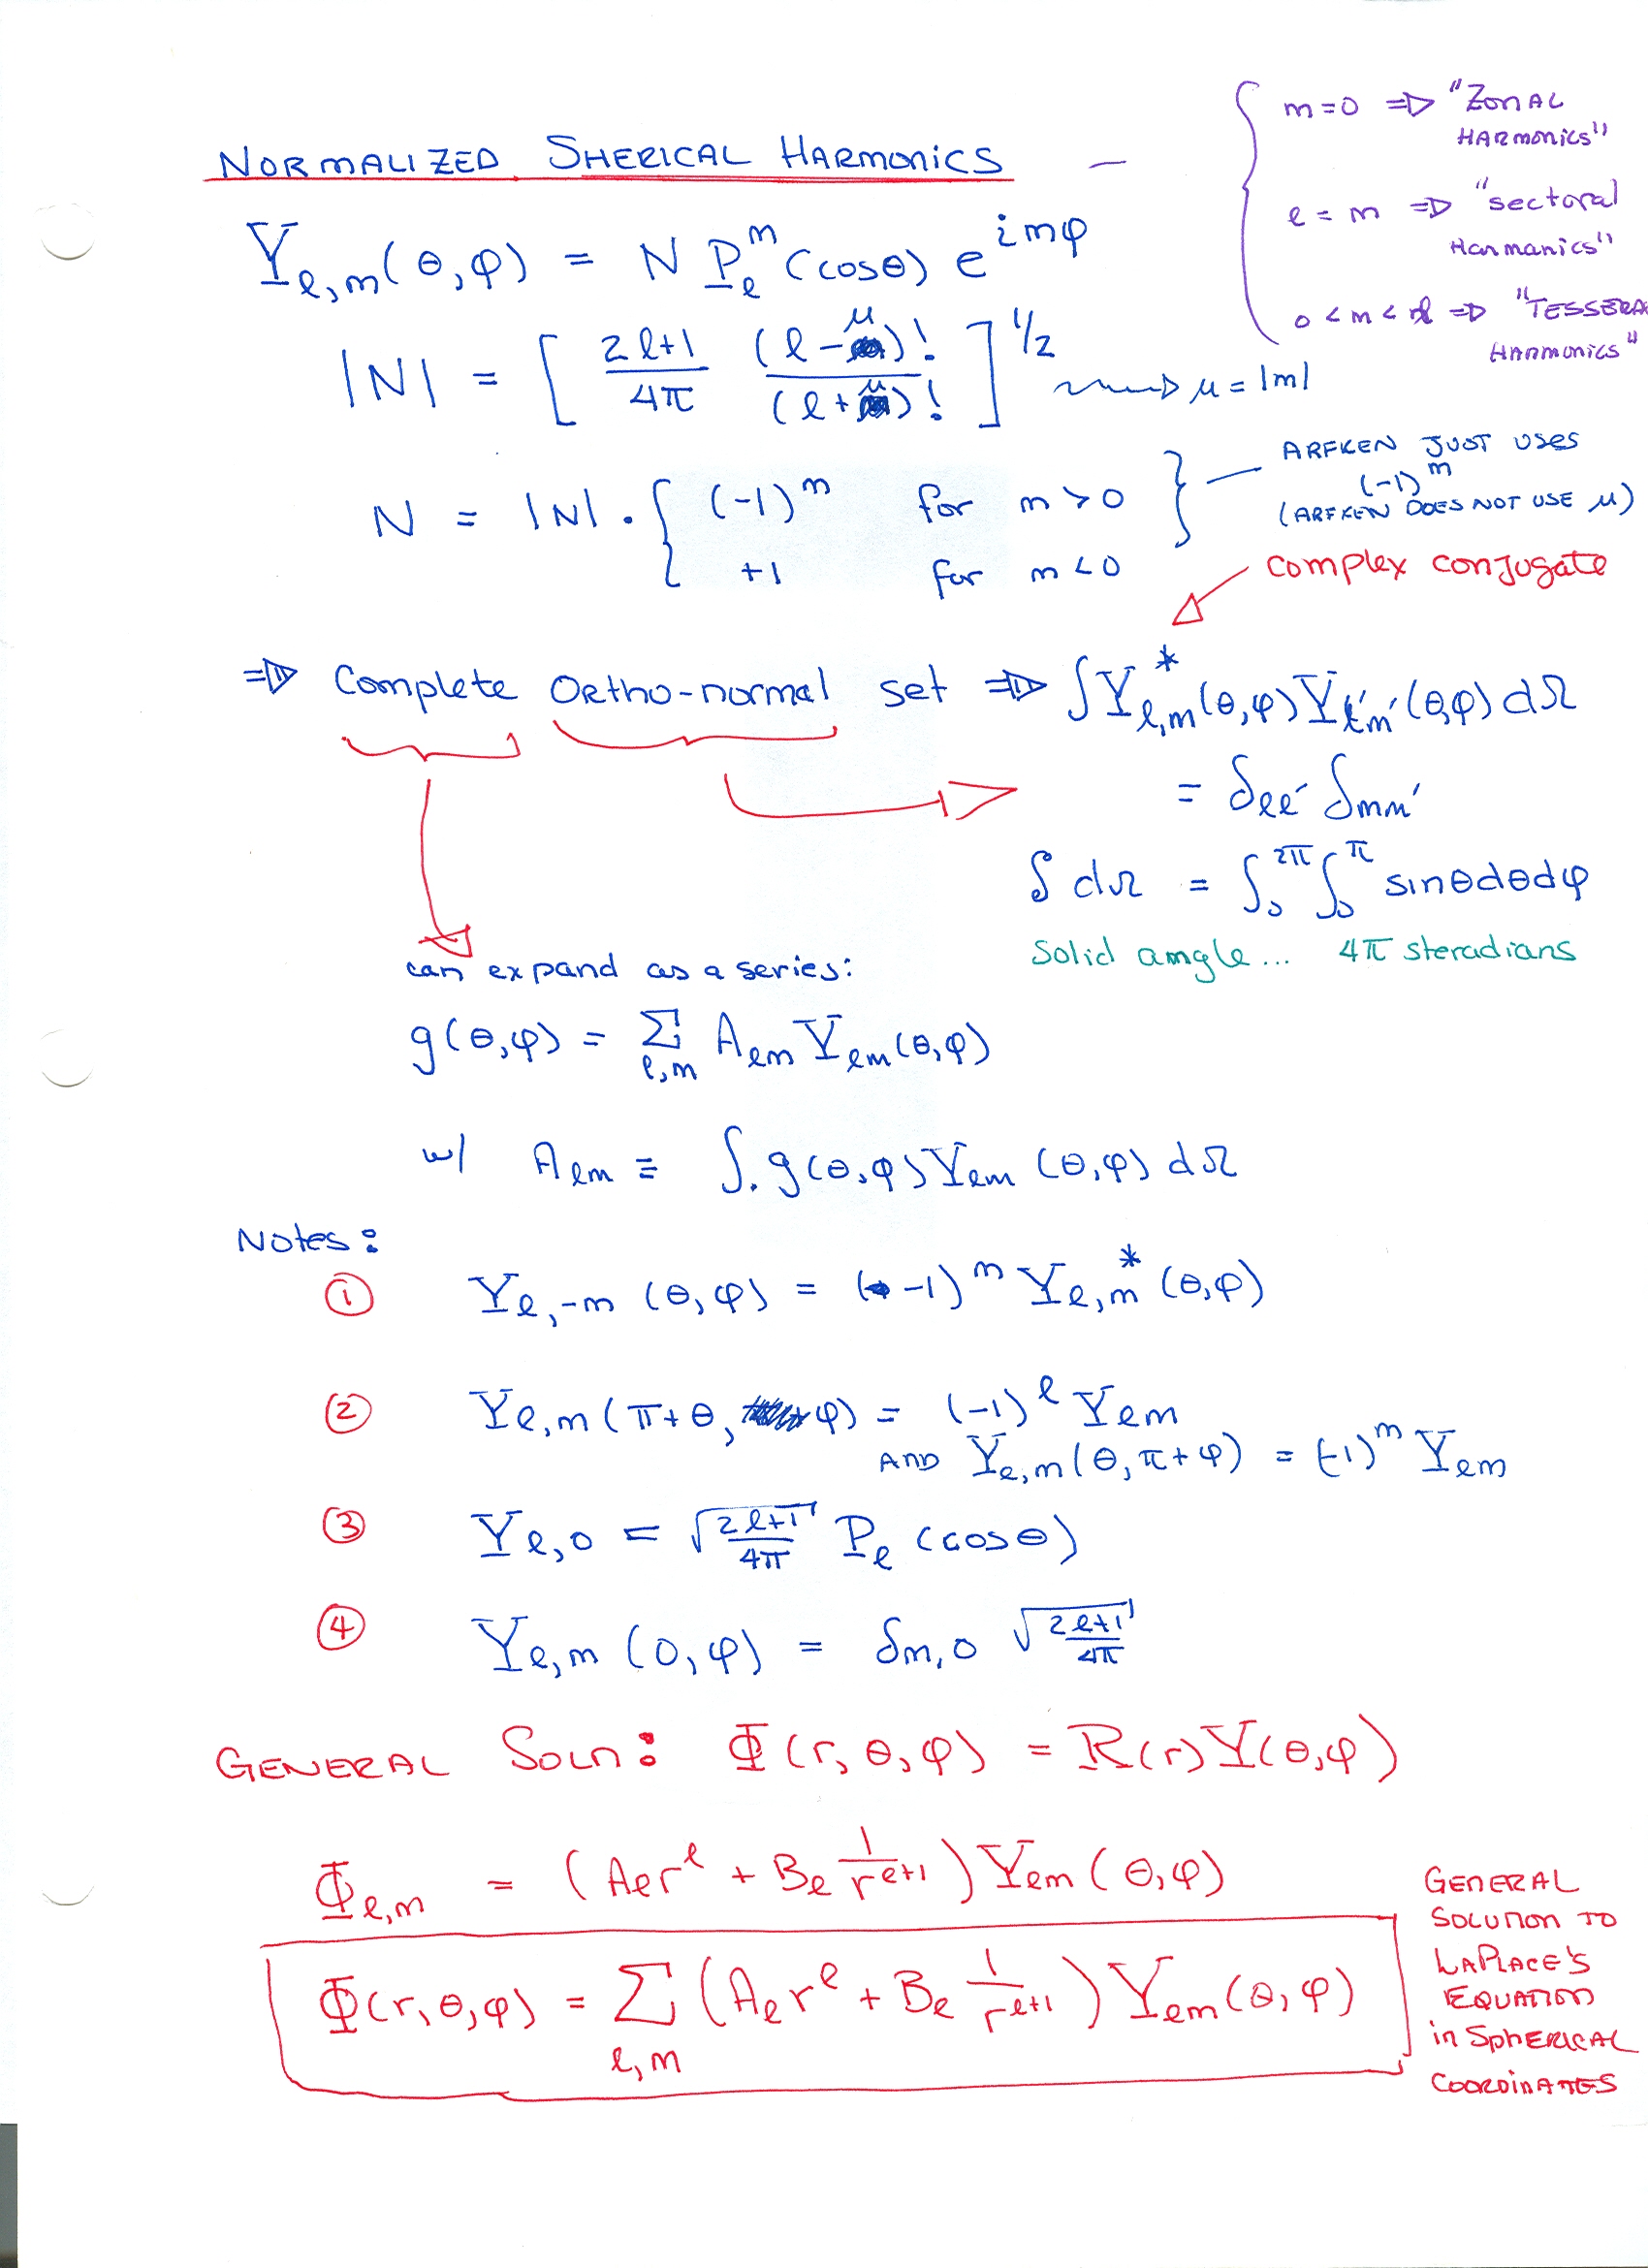 NORMALIZED SHERICAL HARMONICS —
{ m=0 ⇒ "ZONAL
HARMONICS"
ℓ = m ⇒ "sectoral
Harmanics"
0 < m < ℓ ⇒ "TESSERA
HARMONICS"
Y_{ℓ,m}(θ,φ) = N P_ℓ^m (cosθ) e^{imφ}
|N| = [ \frac{2ℓ+1}{4π} \frac{(ℓ-μ)!}{(ℓ+μ)!} ]^{1/2} → μ = |m|
N = |N| · { (-1)^m for m > 0
+1 for m < 0 }
ARFKEN JUST USES
(-1)^m
(ARFKEN DOES NOT USE μ)
complex conjugate
⇒ Complete Ortho-normal set ⇒ ∫Y*_{ℓ,m}(θ,φ)Y_{ℓ'm'}(θ,φ) dΩ
= δ_{ℓℓ'} δ_{mm'}
∫ dΩ = ∫_0^{2π} ∫_0^π sinθdθdφ
Solid angle... 4π steradians
can expand as a series:
g(θ,φ) = Σ_{ℓ,m} A_{ℓm} Y_{ℓm}(θ,φ)
w/ A_{ℓm} ≡ ∫. g(θ,φ) Y_{ℓm} (θ,φ) dΩ
Notes:
① Y_{ℓ,-m} (θ,φ) = (-1)^m Y*_{ℓ,m} (θ,φ)
② Y_{ℓ,m} (π+θ, φ) = (-1)^ℓ Y_{ℓm}
AND Y_{ℓ,m}(θ, π+φ) = (-1)^m Y_{ℓm}
③ Y_{ℓ,0} = √\frac{2ℓ+1}{4π} P_ℓ (cosθ)
④ Y_{ℓ,m} (0,φ) = δ_{m,0} √\frac{2ℓ+1}{4π}
GENERAL SOLN: Φ(r,θ,φ) = R(r)Y(θ,φ)
Φ_{ℓ,m} = (A_ℓ r^ℓ + B_ℓ \frac{1}{r^{ℓ+1}}) Y_{ℓm} (θ,φ)
Φ(r,θ,φ) = Σ_{ℓ,m} (A_ℓ r^ℓ + B_ℓ \frac{1}{r^{ℓ+1}}) Y_{ℓm}(θ,φ)
GENERAL
SOLUTION TO
LAPLACE'S
EQUATION
in SPHERICAL
COORDINATES